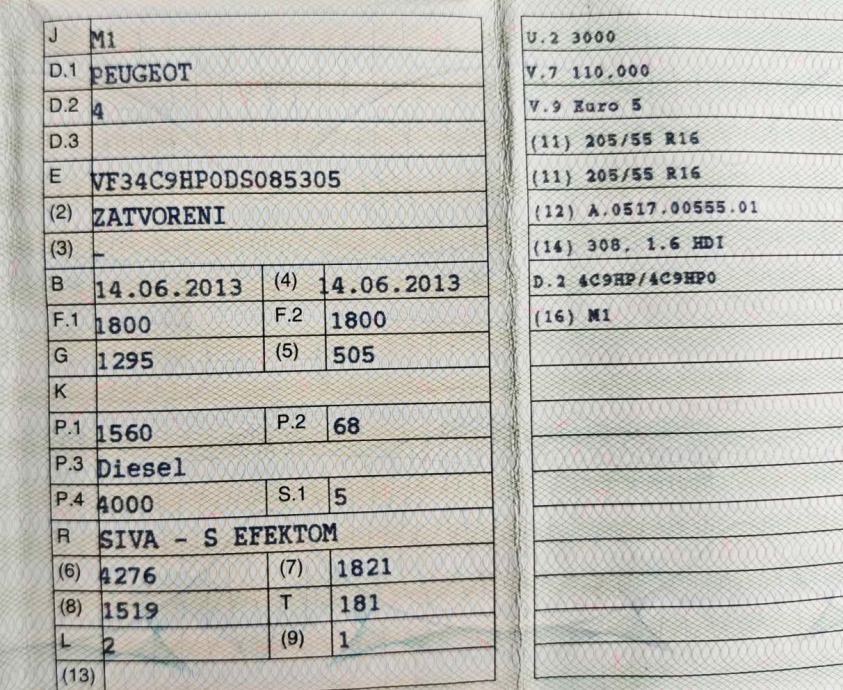 J M1
D.1 PEUGEOT
D.2 4
D.3
E VF34C9HP0DS085305
(2) ZATVORENI
(3) –
B 14.06.2013 (4) 14.06.2013
F.1 1800 F.2 1800
G 1295 (5) 505
K
P.1 1560 P.2 68
P.3 Diesel
P.4 4000 S.1 5
R SIVA - S EFEKTOM
(6) 4276 (7) 1821
(8) 1519 T 181
L 2 (9) 1
(13)
U.2 3000
V.7 110.000
V.9 Euro 5
(11) 205/55 R16
(11) 205/55 R16
(12) A.0517.00555.01
(14) 308, 1.6 HDI
D.2 4C9HP/4C9HP0
(16) M1